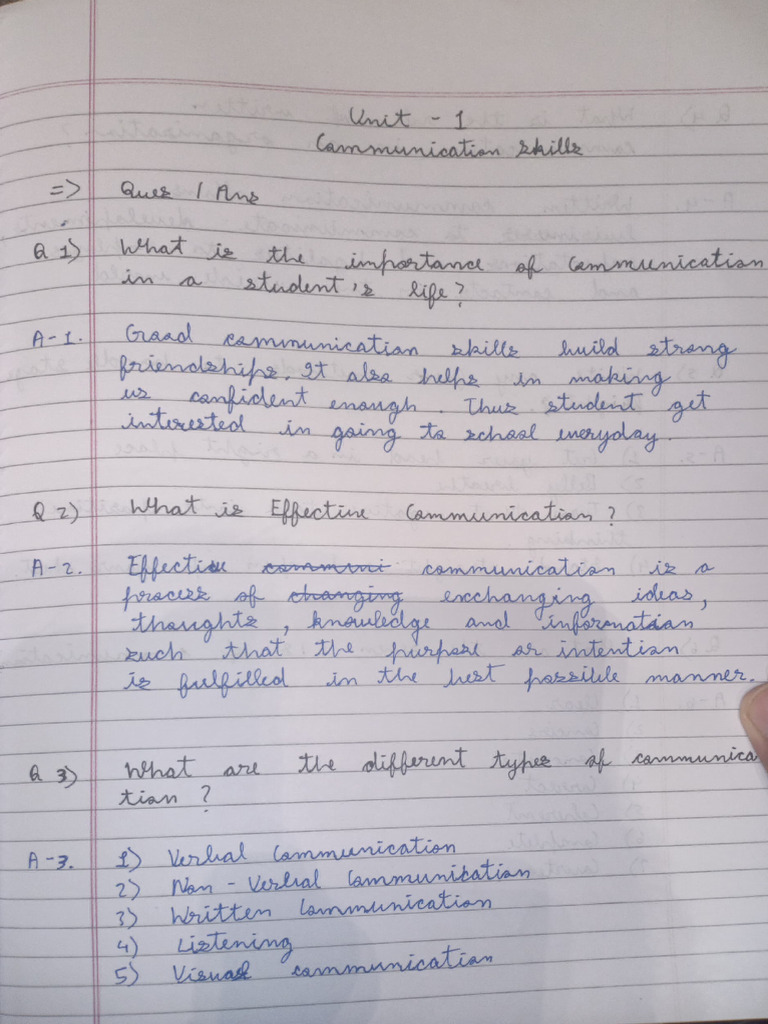 Unit - 1
Communication skills
=> Ques / Ans
Q 1) What is the importance of Communication
in a student's life?
A-1. Good communication skills build strong
friendships. It also helps in making
us confident enough. Thus student get
interested in going to school everyday.
Q 2) What is Effective Communication?
A-2. Effective communi communication is a
process of changing exchanging ideas,
thoughts, knowledge and information
such that the purpose or intention
is fulfilled in the best possible manner.
Q 3) What are the different types of communica
tion?
A-3. 1) Verbal Communication
2) Non-Verbal Communication
3) Written Communication
4) Listening
5) Visual communication